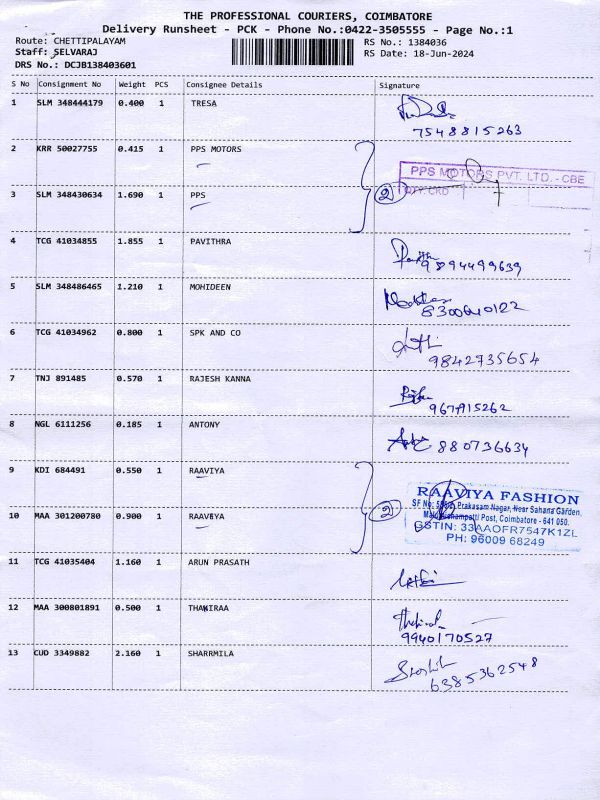 THE PROFESSIONAL COURIERS, COIMBATORE
Delivery Runsheet - PCK - Phone No.:0422-3505555 - Page No.:1
Route: CHETTIPALAYAM RS No.: 1384036
Staff: SELVARAJ RS Date: 18-Jun-2024
DRS No.: DCJB138403601
S No Consignment No Weight PCS Consignee Details Signature
1 SLM 348444179 0.400 1 TRESA
7548815263
2 KRR 50027755 0.415 1 PPS MOTORS
PPS MOTORS PVT. LTD. - CBE
3 SLM 348430634 1.690 1 PPS 2
4 TCG 41034855 1.855 1 PAVITHRA
9894499639
5 SLM 348486465 1.210 1 MOHIDEEN
8300640122
6 TCG 41034962 0.800 1 SPK AND CO
9842735654
7 TNJ 891485 0.570 1 RAJESH KANNA
8 NGL 6111256 0.185 1 ANTONY 880736634
9 KDI 684491 0.550 1 RAAVIYA
RAAVIYA FASHION
Prakasam Nagar, Near Sahana Garden,
10 MAA 301200780 0.900 1 RAAVEYA 2
Post, Coimbatore - 641 050.
GSTIN: 33AAOFR7547K1ZL
PH: 96009 68249
11 TCG 41035404 1.160 1 ARUN PRASATH
12 MAA 300801891 0.500 1 THAKIRAA
9940170527
13 CUD 3349882 2.160 1 SHARRMILA
6385362548